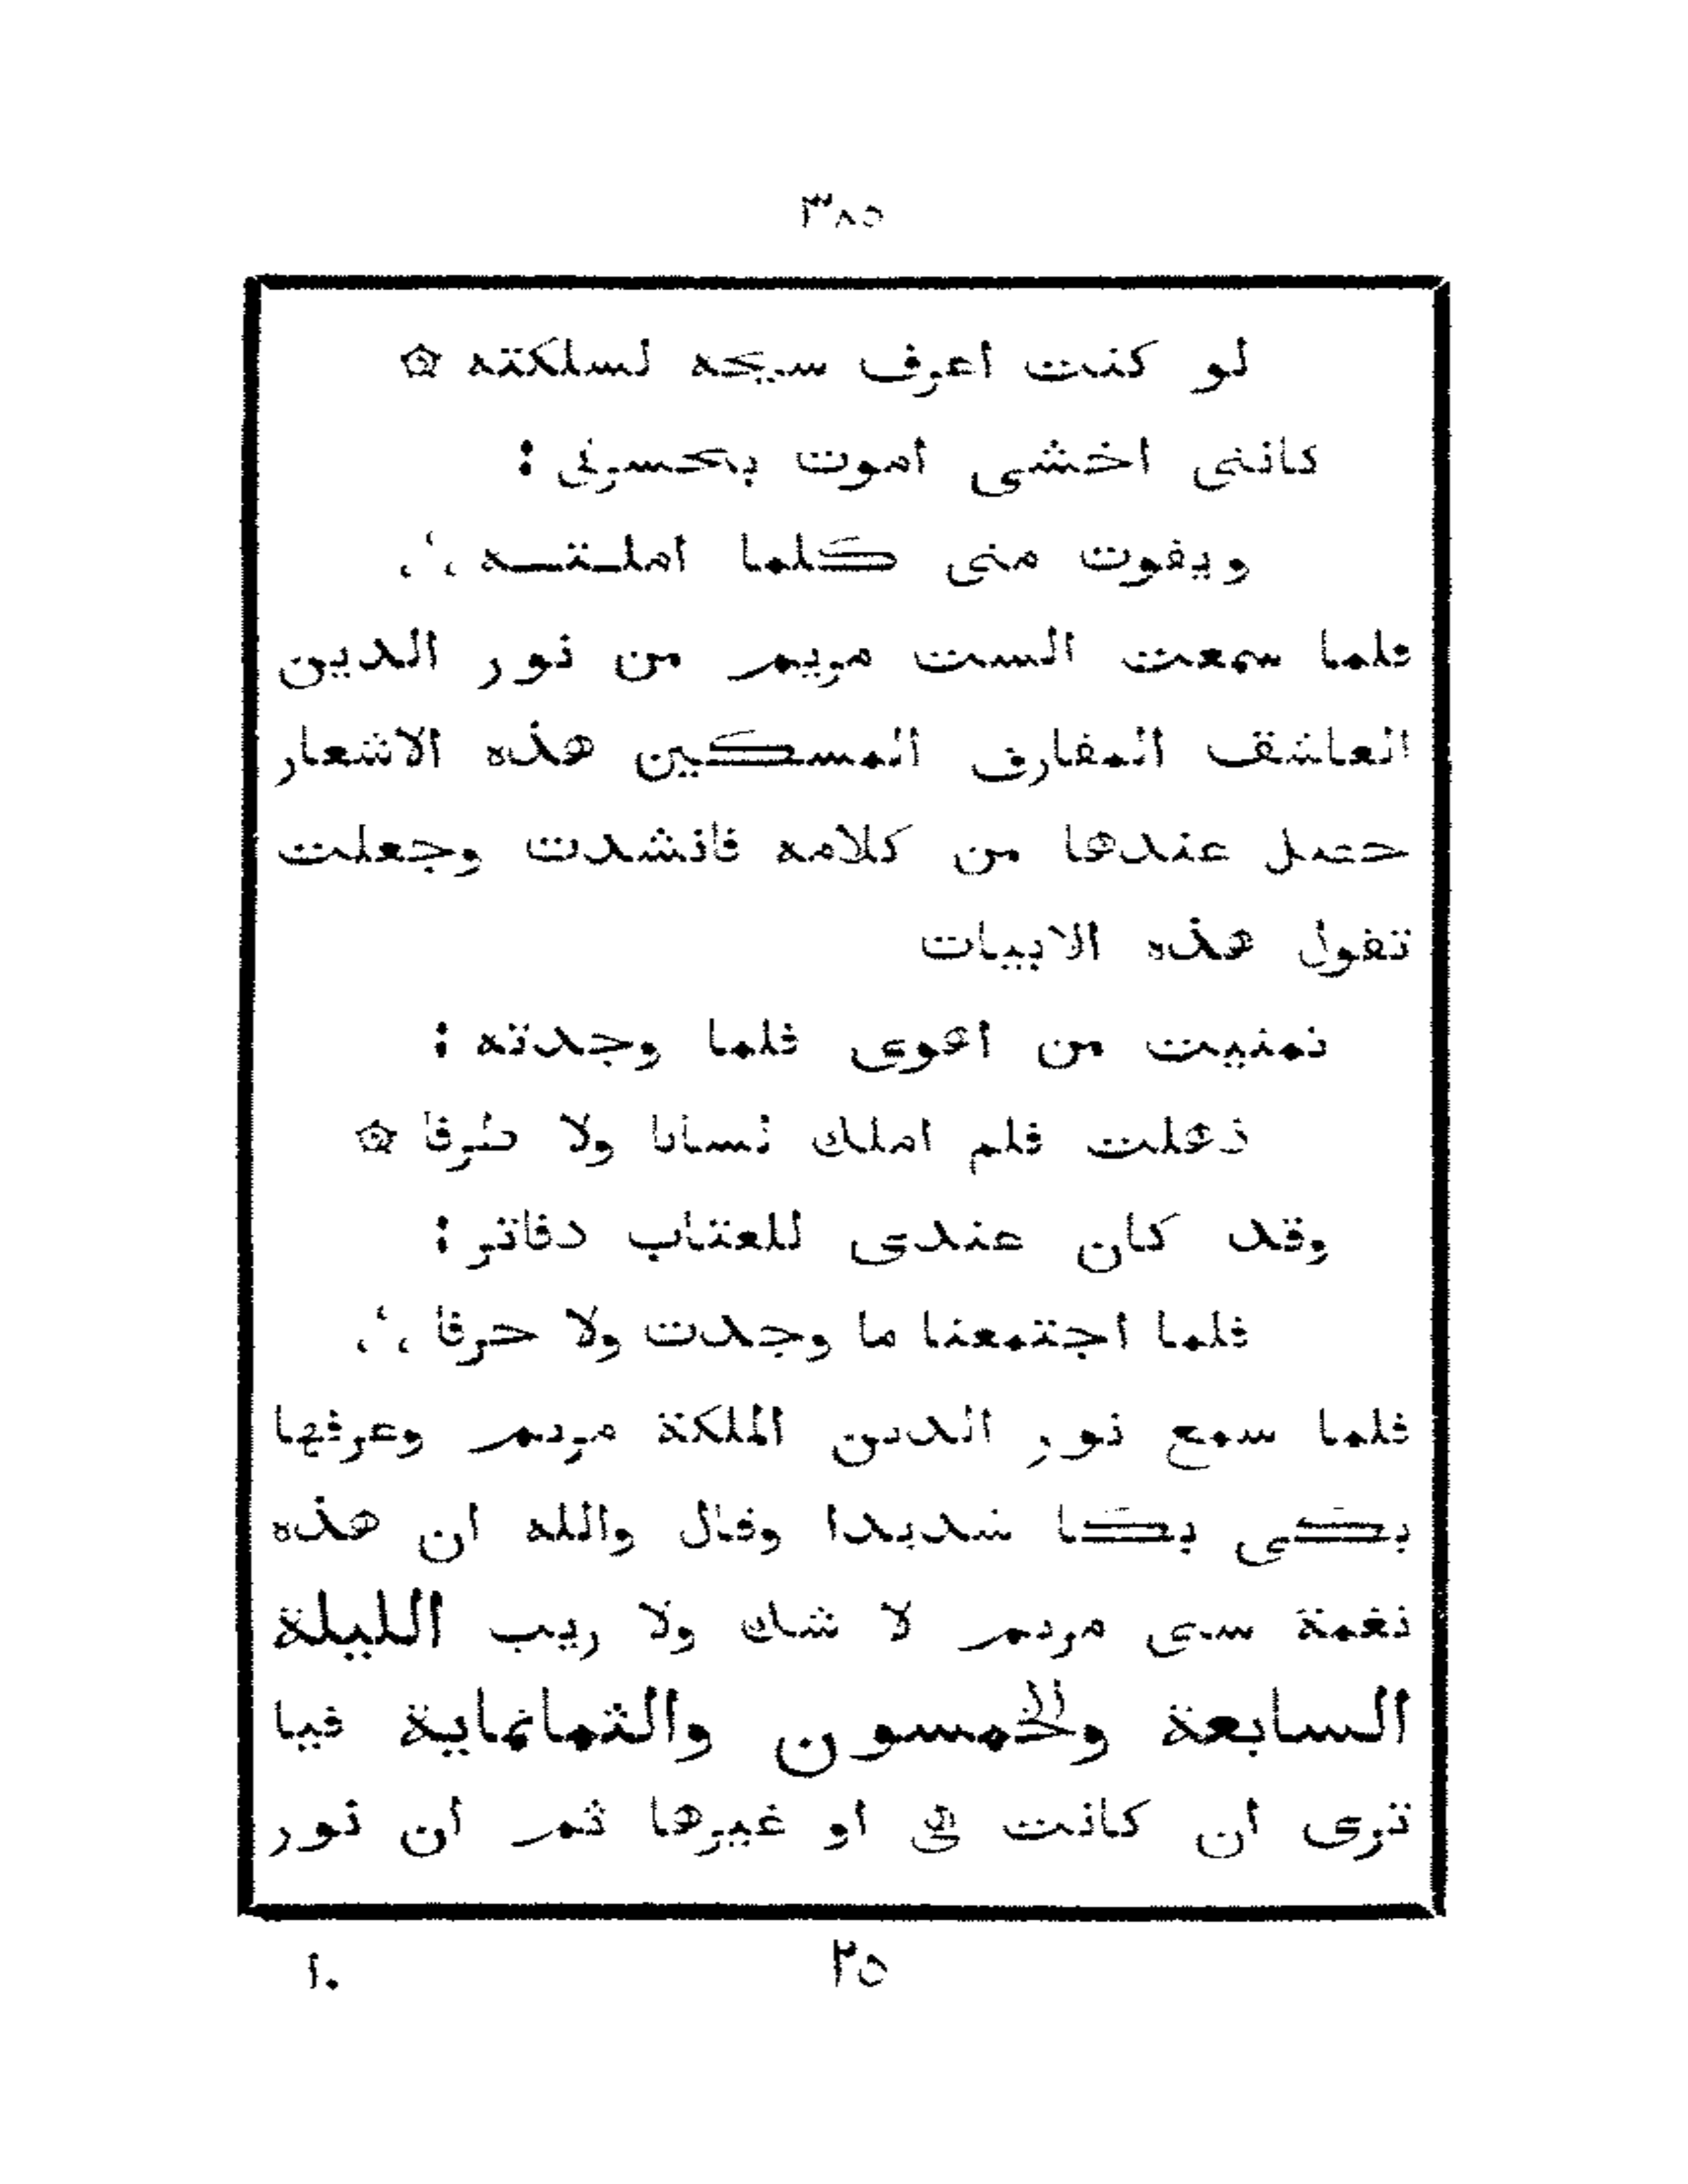 ٣٨٥
لو كنت اعرف سيحه لسلكته ۞
كاننى اخشى اموت بحسرتى :
ويفوت منى كلما املـتـــه ؞
فلما سمعت الست مريم من نور الدين
العاشق المفارق المسكين هذه الاشعار
حصل عندها من كلامه فانشدت وجعلت
تقول هذه الابيات
تمنيت من اهوى فلما وجدته :
ذهلت فلم املك لسانا ولا طرفا ۞
وقد كان عندى للعتاب دفاتر :
فلما اجتمعنا ما وجدت ولا حرفا ؞
فلما سمع نور الدين الملكة مريم وعرفها
بكى بكا شديدا وقال والله ان هذه
نغمة ستى مريم لا شك ولا ريب الليلة
السابعة والخمسون والثمانماية فيا
ترى ان كانت هى او غيرها ثم ان نور
٢٥
١٠